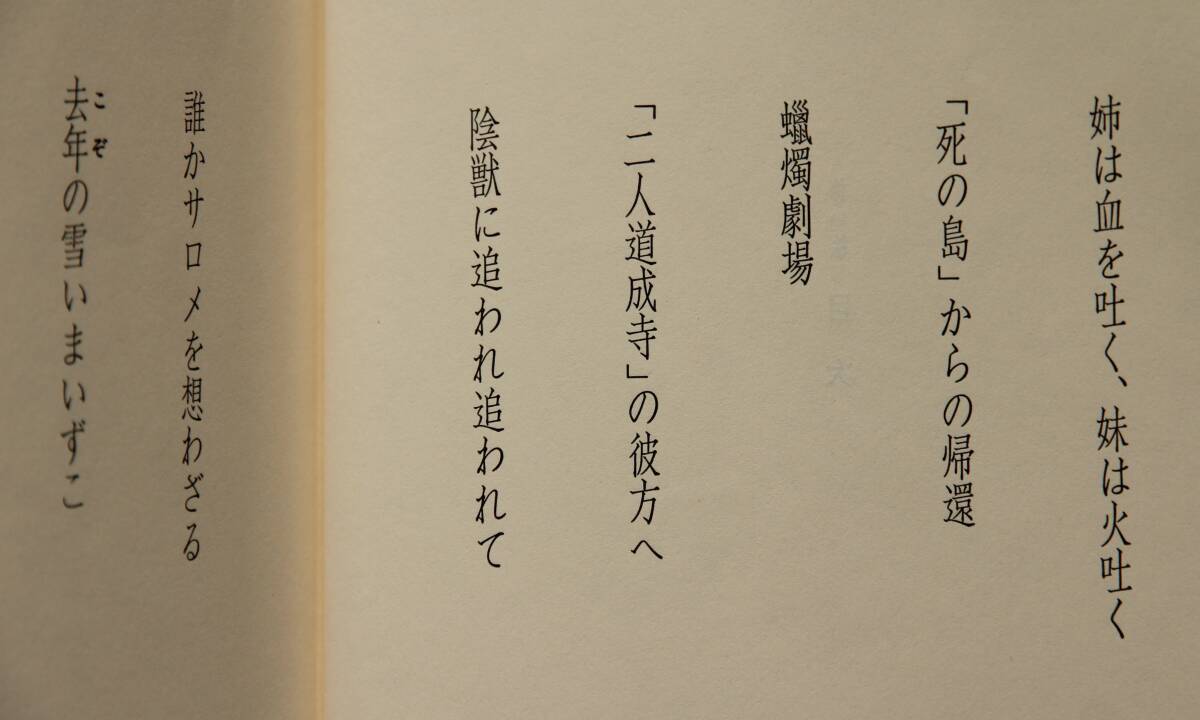 姉は血を吐く、妹は火吐く
「死の島」からの帰還
蠟燭劇場
「二人道成寺」の彼方へ
陰獣に追われ追われて
誰かサロメを想わざる
去年の雪いまいずこ
こぞ